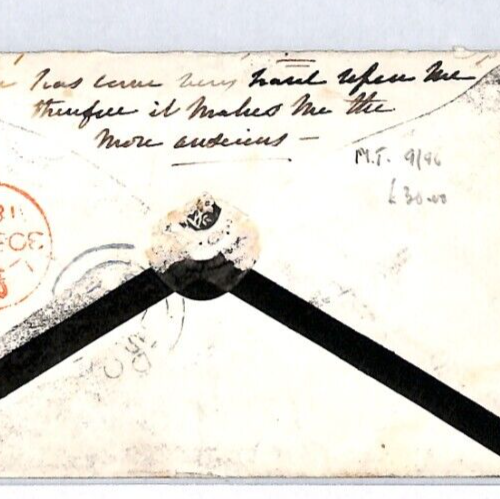 has come very hard upon me
therefore it makes me the
more anxious —
M.T. 9/96
£30.00